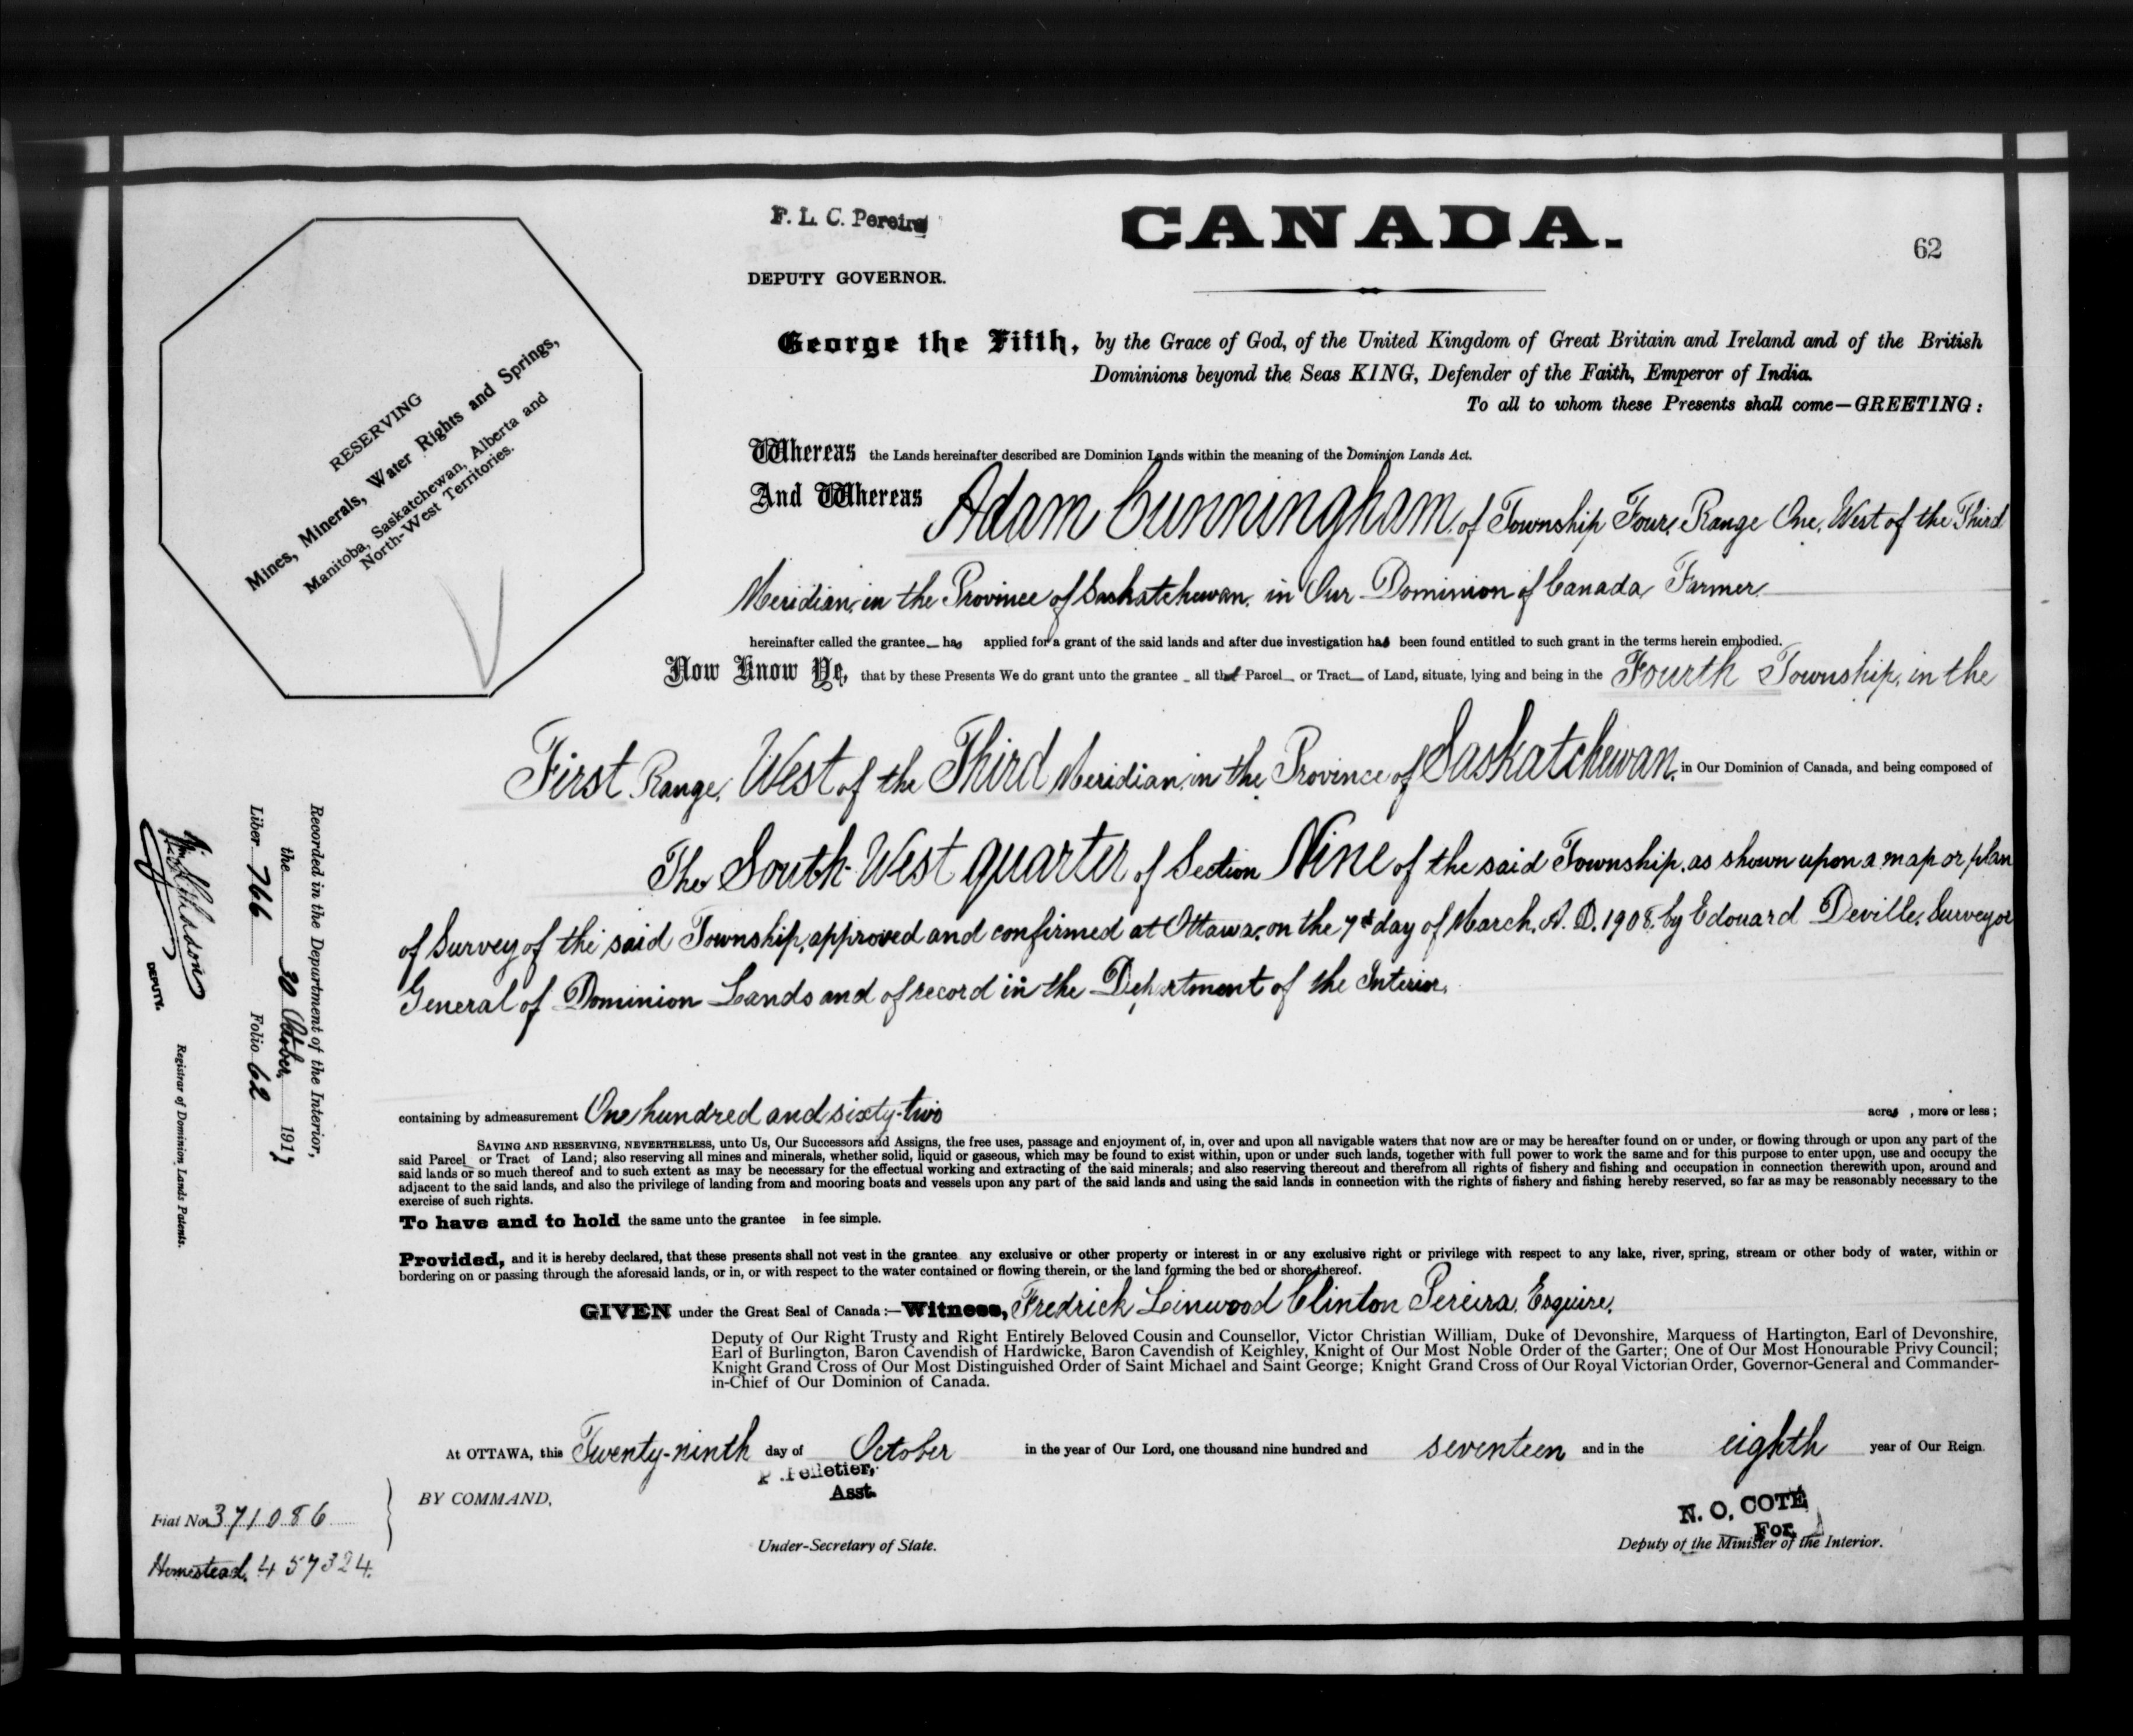 F. L. C. Pereira
CANADA.
62
DEPUTY GOVERNOR.
George the Fifth, by the Grace of God, of the United Kingdom of Great Britain and Ireland and of the British
Dominions beyond the Seas KING, Defender of the Faith, Emperor of India.
To all to whom these Presents shall come—GREETING:
RESERVING
Mines, Minerals, Water Rights and Springs,
Manitoba, Saskatchewan, Alberta and
North-West Territories.
Whereas the Lands hereinafter described are Dominion Lands within the meaning of the Dominion Lands Act.
And Whereas Adam Cunningham, of Township Four, Range One, West of the Third
Meridian, in the Province of Saskatchewan, in Our Dominion of Canada, Farmer
hereinafter called the grantee has applied for a grant of the said lands and after due investigation has been found entitled to such grant in the terms herein embodied.
Now Know Ye, that by these Presents We do grant unto the grantee all that Parcel or Tract of Land, situate, lying and being in the Fourth Township, in the
First Range, West of the Third Meridian, in the Province of Saskatchewan, in Our Dominion of Canada, and being composed of
The South-West quarter of Section Nine of the said Township, as shown upon a map or plan
of Survey of the said Township, approved and confirmed at Ottawa, on the 7th day of March, A.D. 1908, by Edouard Deville, Surveyor
General of Dominion Lands and of record in the Department of the Interior.
containing by admeasurement One hundred and sixty-two acres, more or less;
SAVING AND RESERVING, NEVERTHELESS, unto Us, Our Successors and Assigns, the free uses, passage and enjoyment of, in, over and upon all navigable waters that now are or may be hereafter found on or under, or flowing through or upon any part of the
said Parcel or Tract of Land; also reserving all mines and minerals, whether solid, liquid or gaseous, which may be found to exist within, upon or under such lands, together with full power to work the same and for this purpose to enter upon, use and occupy the
said lands or so much thereof and to such extent as may be necessary for the effectual working and extracting of the said minerals; and also reserving thereout and therefrom all rights of fishery and fishing and occupation in connection therewith upon, around and
adjacent to the said lands, and also the privilege of landing from and mooring boats and vessels upon any part of the said lands and using the said lands in connection with the rights of fishery and fishing hereby reserved, so far as may be reasonably necessary to the
exercise of such rights.
To have and to hold the same unto the grantee in fee simple.
Provided, and it is hereby declared, that these presents shall not vest in the grantee any exclusive or other property or interest in or any exclusive right or privilege with respect to any lake, river, spring, stream or other body of water, within or
bordering on or passing through the aforesaid lands, or in, or with respect to the water contained or flowing therein, or the land forming the bed or shore thereof.
GIVEN under the Great Seal of Canada:—Witness, Fredrick Linwood Clinton Pereira, Esquire,
Deputy of Our Right Trusty and Right Entirely Beloved Cousin and Counsellor, Victor Christian William, Duke of Devonshire, Marquess of Hartington, Earl of Devonshire,
Earl of Burlington, Baron Cavendish of Hardwicke, Baron Cavendish of Keighley, Knight of Our Most Noble Order of the Garter; One of Our Most Honourable Privy Council;
Knight Grand Cross of Our Most Distinguished Order of Saint Michael and Saint George; Knight Grand Cross of Our Royal Victorian Order, Governor-General and Commander-
in-Chief of Our Dominion of Canada.
At OTTAWA, this Twenty-ninth day of October in the year of Our Lord, one thousand nine hundred and seventeen and in the eighth year of Our Reign.
BY COMMAND,
P. Pelletier,
Asst.
Under-Secretary of State.
N. O. COTÉ
For
Deputy of the Minister of the Interior.
Fiat No. 371086
Homestead. 457324.
Recorded in the Department of the Interior,
the 30 October, 1917
Liber 766 Folio 62
DEPUTY.
Registrar of Dominion Lands Patents.